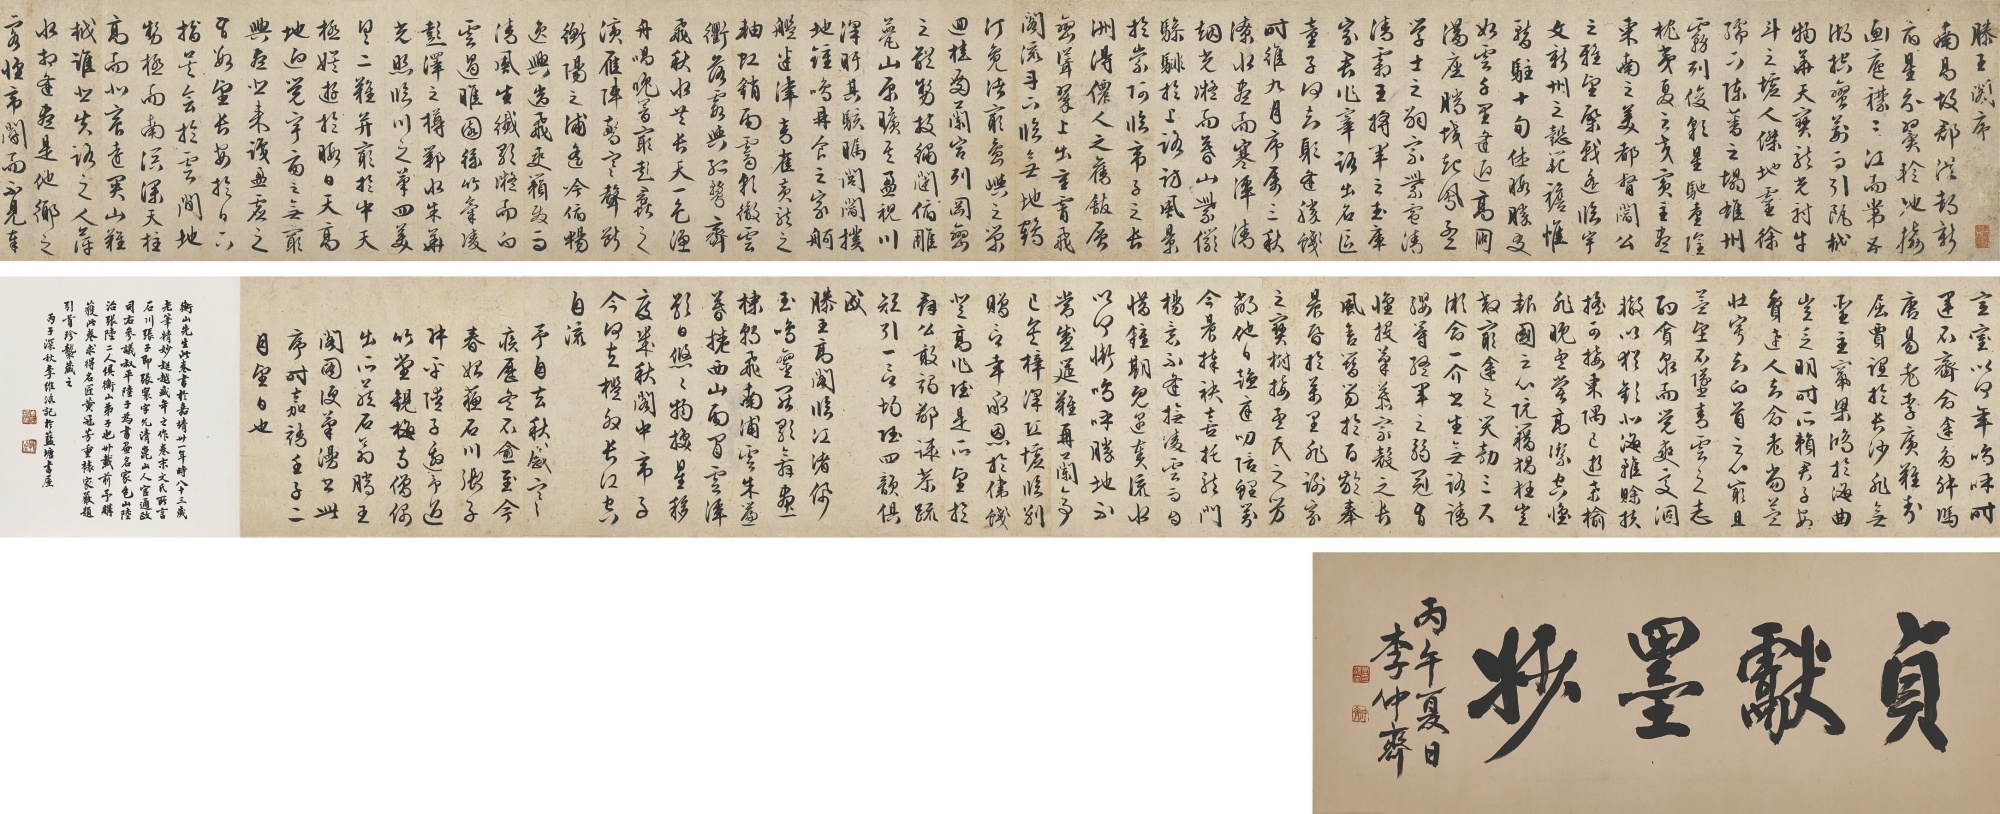 滕王閣序
南昌故郡洪都新
府星分翼軫地接
衡廬襟三江而帶五
湖控蠻荊而引甌越
物華天寶龍光射牛
斗之墟人傑地靈徐
孺下陳蕃之榻雄州
霧列俊彩星馳臺隍
枕夷夏之交賓主盡
東南之美都督閻公
之雅望棨戟遙臨宇
文新州之懿範襜帷
暫駐十旬休暇勝友
如雲千里逢迎高朋
滿座騰蛟起鳳孟
學士之詞宗紫電清
霜王將軍之武庫
家君作宰路出名區
童子何知躬逢勝餞
時維九月序屬三秋
潦水盡而寒潭清
烟光凝而暮山紫儼
驂騑於上路訪風景
於崇阿臨帝子之長
洲得僊人之舊館層
巒聳翠上出重霄飛
閣流丹下臨無地鶴
汀鳧渚窮島嶼之縈
迴桂殿蘭宮列岡巒
之體勢披繡闥俯雕
甍山原曠其盈視川
澤盱其駭矚閭閻撲
地鐘鳴鼎食之家舸
艦迷津青雀黃龍之
軸虹銷雨霽彩徹雲
衢落霞與孤鶩齊
飛秋水共長天一色漁
舟唱晚響窮彭蠡之
濱雁陣驚寒聲斷
衡陽之浦遙吟俯暢
逸興遄飛爽籟發而
清風生纖歌凝而白
雲遏睢園綠竹氣凌
彭澤之樽鄴水朱華
光照臨川之筆四美
具二難并窮於中天
極娛遊於暇日天高
地迥覺宇宙之無窮
興盡悲來識盈虛之
有數望長安於日下
指吳會於雲間地
勢極而南溟深天柱
高而北辰遠關山難
越誰悲失路之人萍
水相逢盡是他鄉之
客懷帝閽而不見奉
宣室以何年嗚呼時
運不齊命途多舛馮
唐易老李廣難封
屈賈誼於長沙非無
聖主竄梁鴻於海曲
豈乏明時所賴君子安
貧達人知命老當益
壯寧知白首之心窮且
益堅不墜青雲之志
酌貪泉而覺爽處涸
轍以猶歡北海雖賒扶
搖可接東隅已逝桑榆
非晚孟嘗高潔空懷
報國之心阮籍猖狂豈
效窮途之哭勃三尺
微命一介書生無路請
纓等終軍之弱冠有
懷投筆慕宗慤之長
風舍簪笏於百齡奉
晨昏於萬里非謝家
之寶樹接孟氏之芳
鄰他日趨庭叨陪鯉對
今晨捧袂喜托龍門
楊意不逢撫凌雲而自
惜鍾期既遇奏流水
以何慚嗚呼勝地不
常盛筵難再蘭亭
已矣梓澤丘墟臨別
贈言幸承恩於偉餞
登高作賦是所望於
群公敢竭鄙誠恭疏
短引一言均賦四韻俱
成
滕王高閣臨江渚佩
玉鳴鸞罷歌舞畫
棟朝飛南浦雲朱簾
暮捲西山雨閒雲潭
影日悠悠物換星移
度幾秋閣中帝子
今何在檻外長江空
自流
予自去秋感寒
疾歷冬不愈至今
春始蘇石川張子
叔平陸子邀予過
竹堂觀梅寺僧偶
出所藏石翁騰王
閣圖復筆漫書此
序時嘉靖壬子二
月望日也
衡山先生此卷書於嘉靖卅一年時八十三歲
老筆精妙超越盛年之作卷末文氏所言
石川張子即張寰字允清崑山人官通政
司右參議叔平陸子為書畫名家包山陸
治張陸二人俱衡山弟子也卅載前予購
獲此卷求得名匠黃冠芳重裱家嚴題
引首珍襲藏之
丙子深秋李維滾記於藍塘書屋
貞獻墨妙
丙午夏日
李仲齋